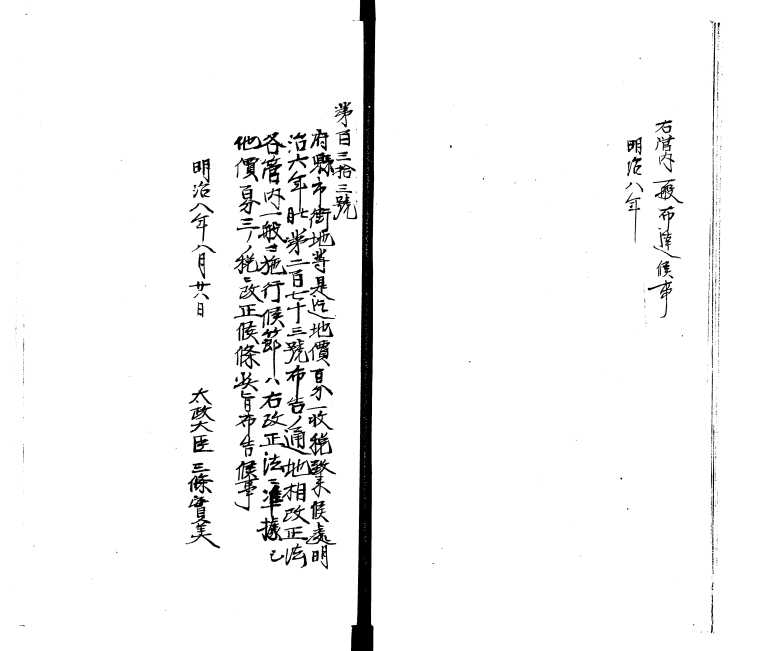 右管内一般布達候事
明治八年
第百三拾三號
府縣市街地等是迄地價百分一收税致来候處明
治六年七月第二百七十二號布告ノ通地租改正法
各管内一般ニ施行候節ハ右改正法ニ準據シ
地價百分三ノ税ニ改正候條此旨布告候事
明治八年八月廿八日
太政大臣三條實美